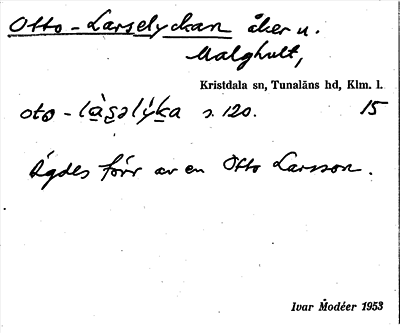 Otto-Larselyckan åker u.
Malghult,
Kristdala sn, Tunaläns hd, Klm. l.
oto - là̱s̱əlý̱ḵa s. 120. 15
Ägdes förr av en Otto Larsson.
Ivar Modéer 1953